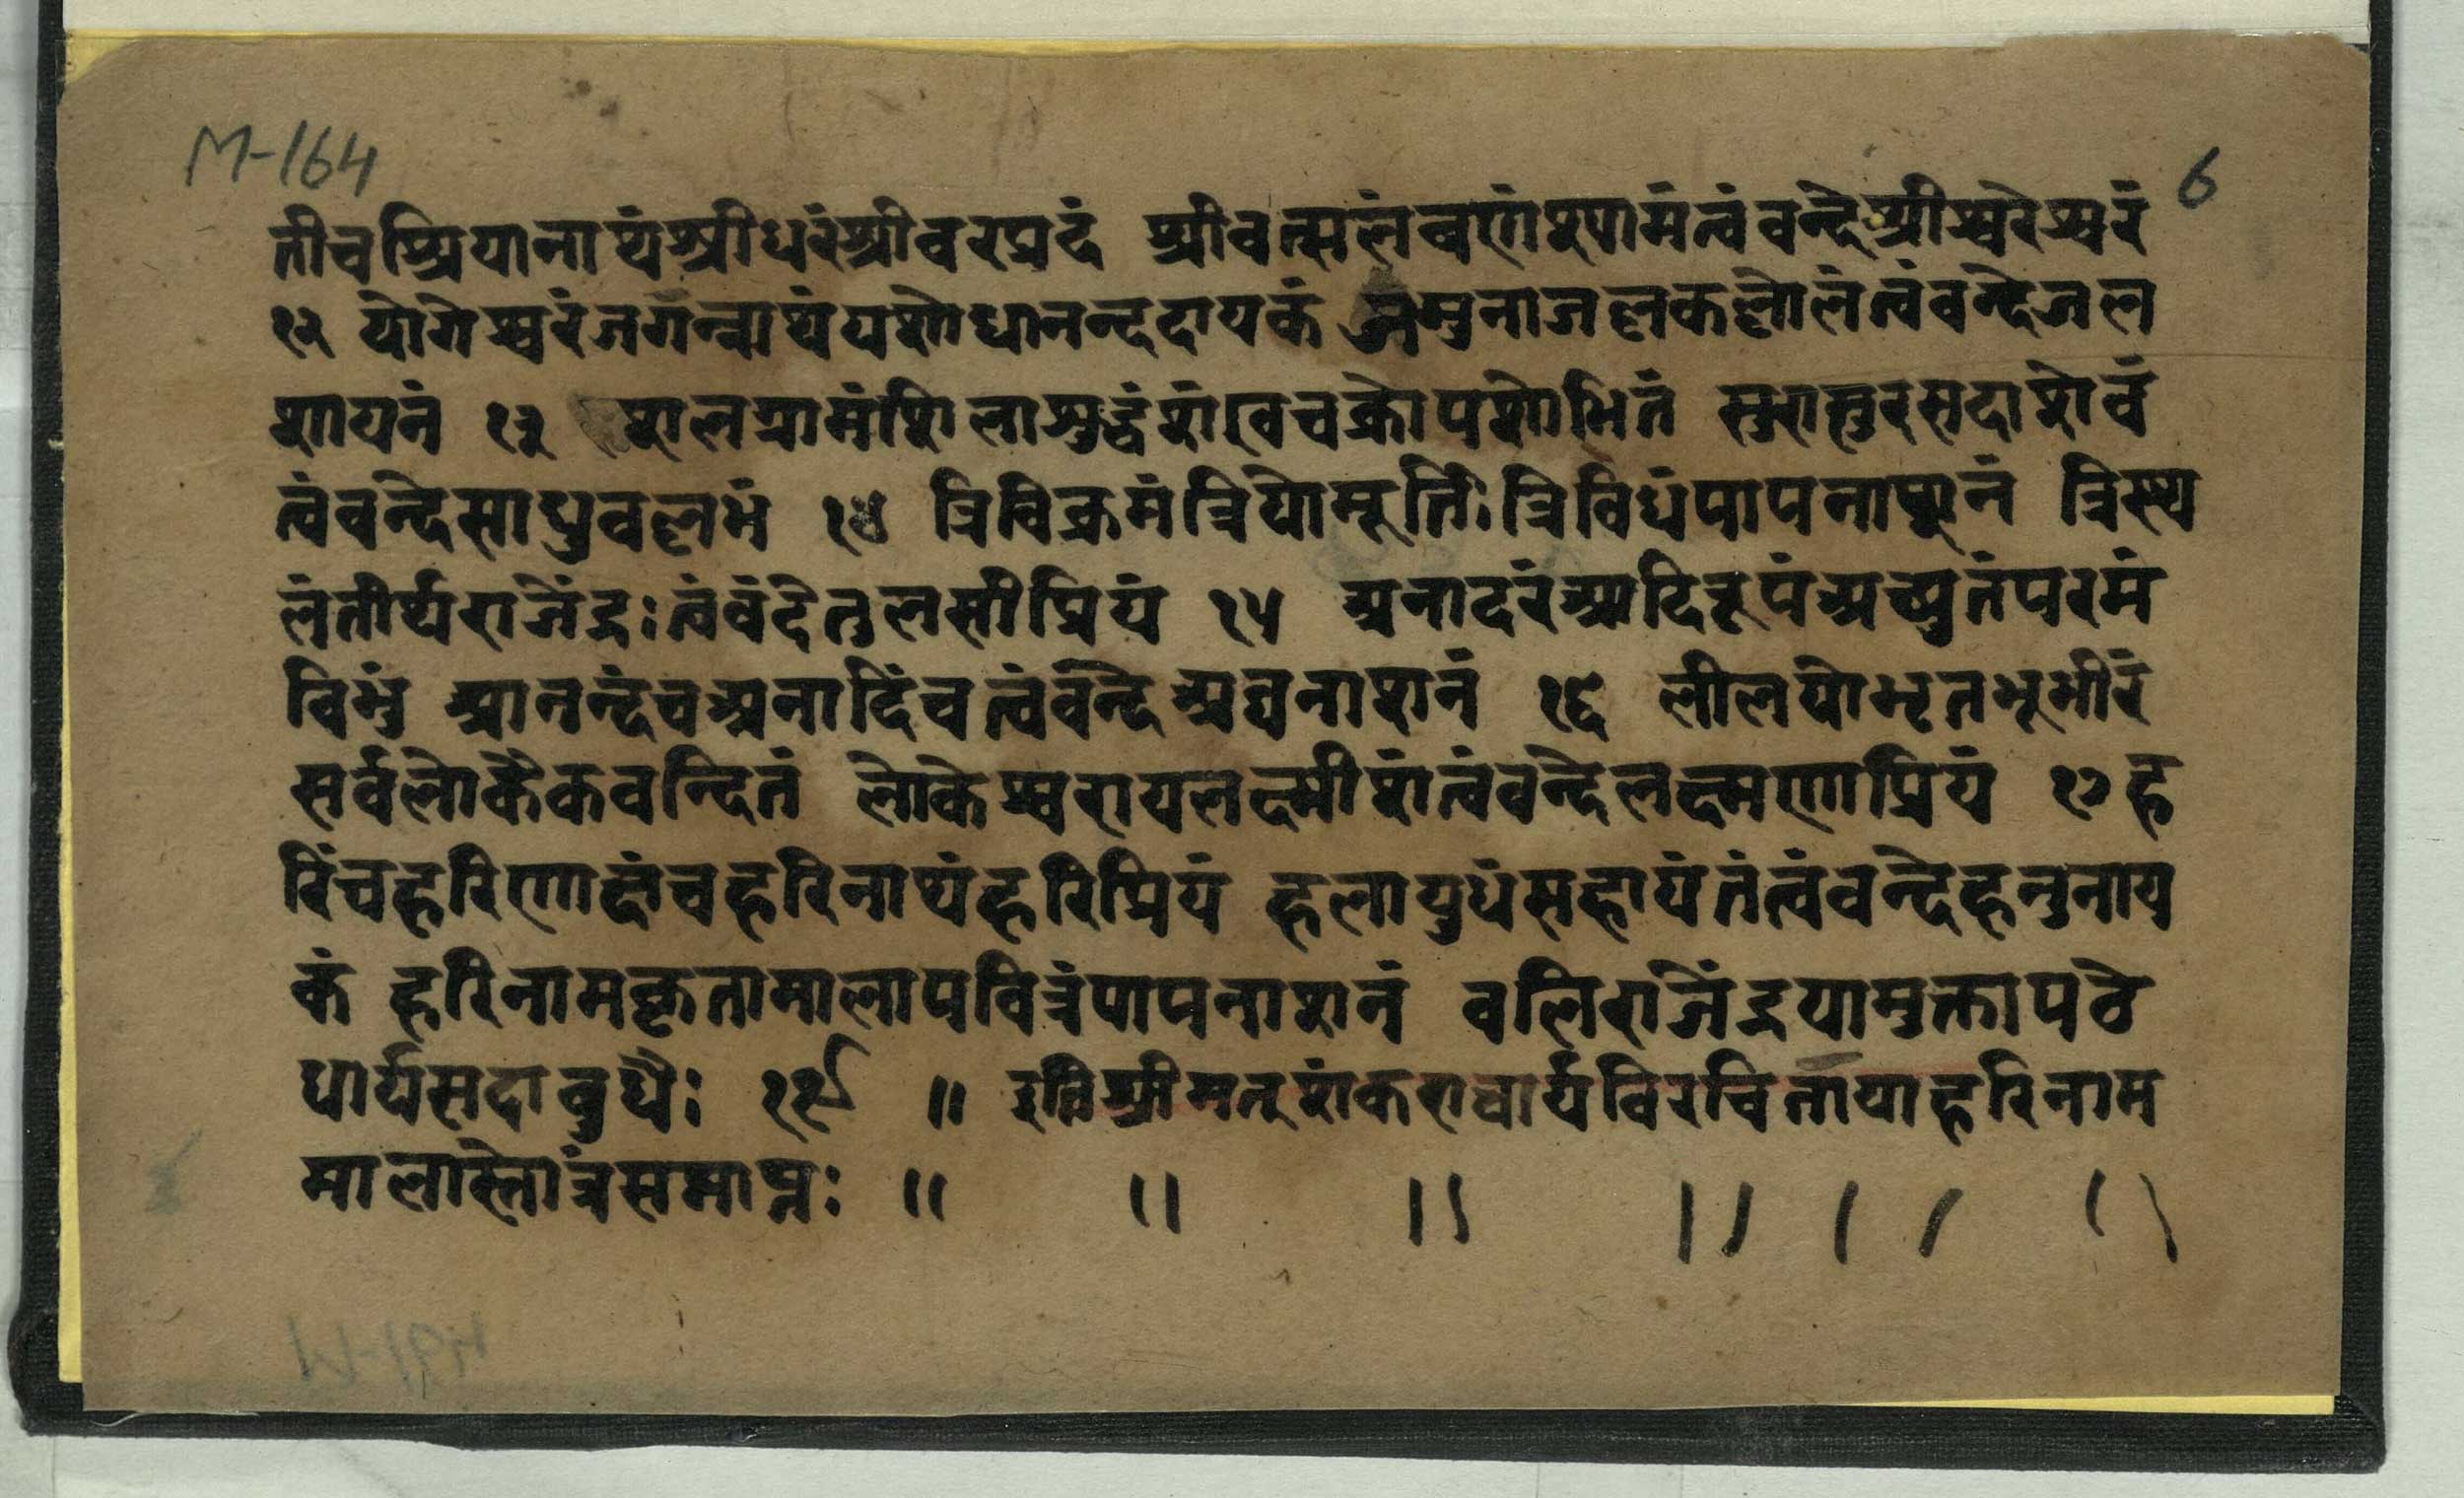 M-164
6
तीचश्रियानाथंश्रीधरंश्रीवरप्रदं श्रीवत्सलंचणंश्यामंत्वंवन्देश्रीश्वरेश्वरं
१२ योगेश्वरंजगन्नाथंयशोधानन्ददायकं जमुनाजल्लकल्लोलंत्वंवन्देजल
शायनं १३ शालग्रामंशिलाशुद्धंशंखचक्रोपशोभितं सुरासुरसदाशेवं
त्वंवन्देसाधुवल्लभं १४ त्रिविक्रमंत्रियोमूर्तिः त्रिविधंपापनाशनं त्रिस्थ
लंतीर्थराजेंद्रः त्वंवंदेतुलसीप्रियं १५ अनादरंआदिरूपंअच्युतंपरमं
विभुं आनन्दंचअनादिंचत्वंवन्देअघनाशनं १६ लीलयोभृतभूभीरं
सर्वलोकैकवन्दितं लोकेश्वरायलक्ष्मीशंत्वंवन्देलक्ष्मणप्रियं १७ ह
रिंचहरिणाक्षंचहरिनाथंहरिप्रियं हलायुधंसहायंतंत्वंवन्देहनुनाय
कं हरिनामकृतामालापवित्रंपापनाशनं वलिराजेंद्रयामुक्तापठे
धार्यसदाबुधैः ११९ ॥ इतिश्रीमत्शंकराचार्यविरचितायाहरिनाम
मालास्तोत्रंसमाप्तः ॥ ॥ ॥ ॥ ॥ ॥